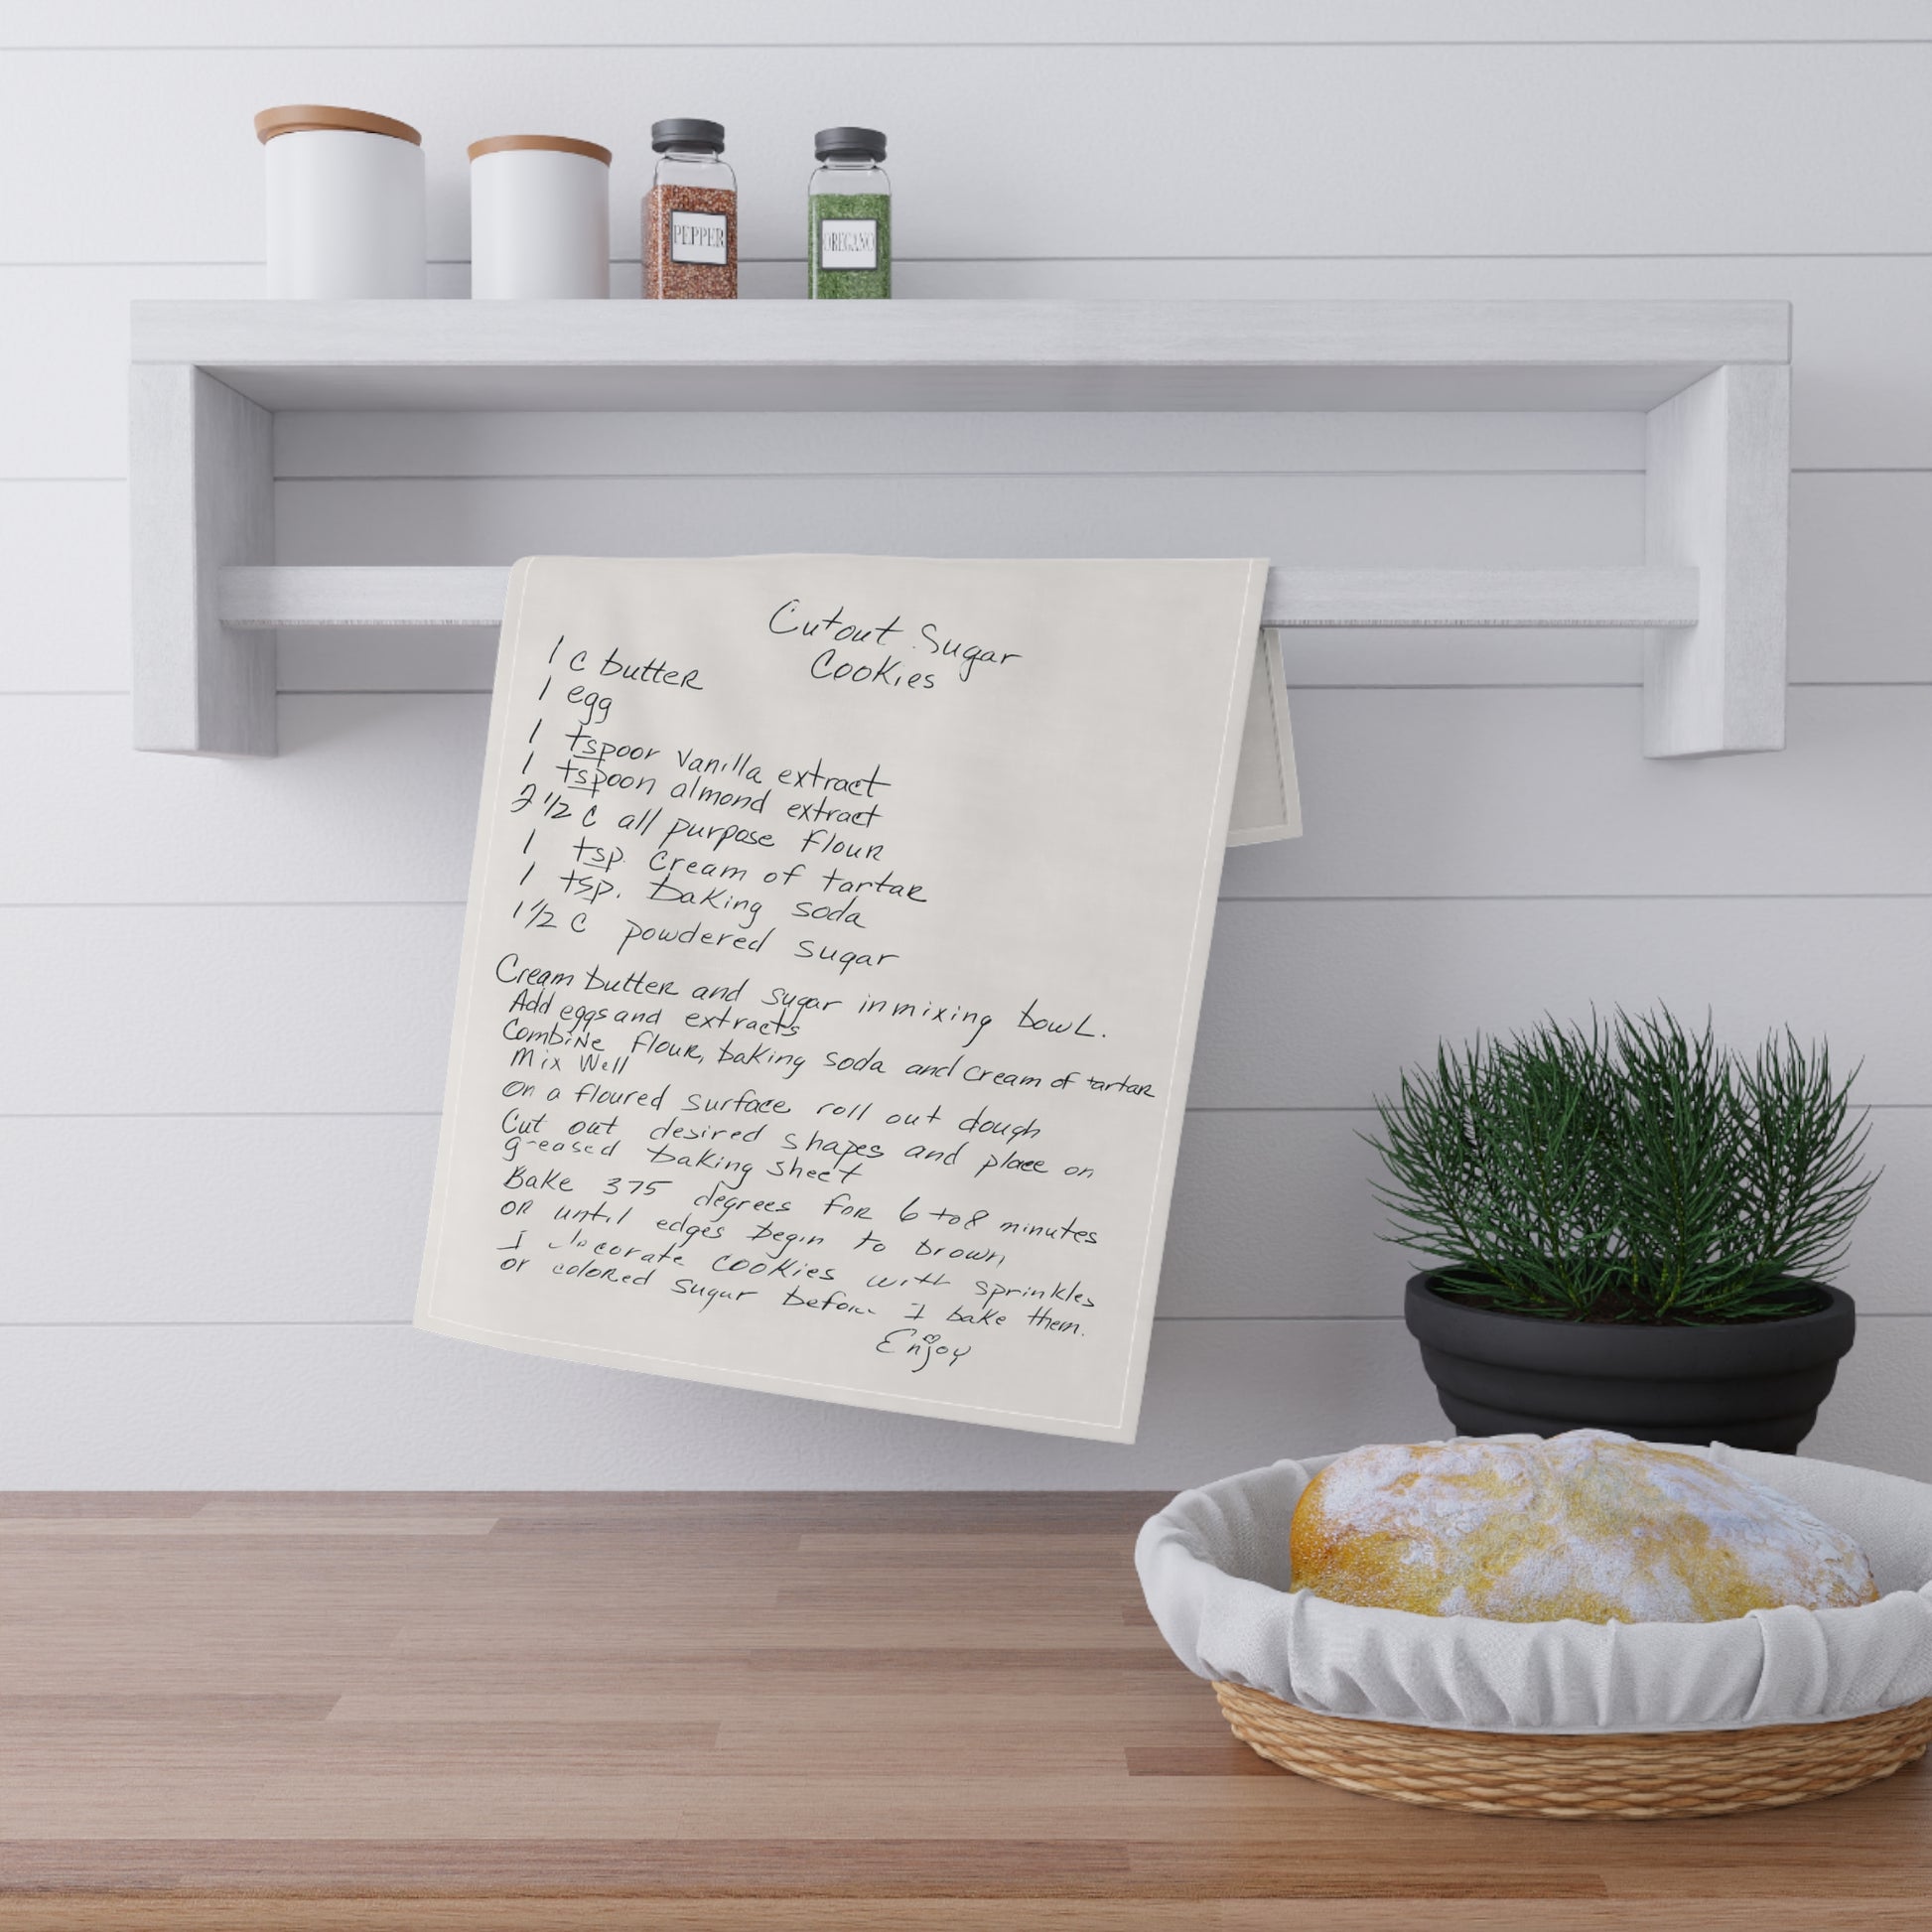 PEPPER
OREGANO
Cutout Sugar
Cookies
1 c butter
1 egg
1 tspoor vanilla extract
1 tspoon almond extract
2 1/2 c all purpose flour
1 tsp. Cream of tartar
1 tsp. baking soda
1 1/2 c powdered sugar
Cream butter and sugar in mixing bowl.
Add eggs and extracts
Combine flour, baking soda and cream of tartar
Mix Well
on a floured surface roll out dough
Cut out desired shapes and place on
greased baking sheet
Bake 375 degrees for 6 to 8 minutes
or until edges begin to brown,
I decorate cookies with sprinkles
or colored sugar before I bake them.
Enjoy